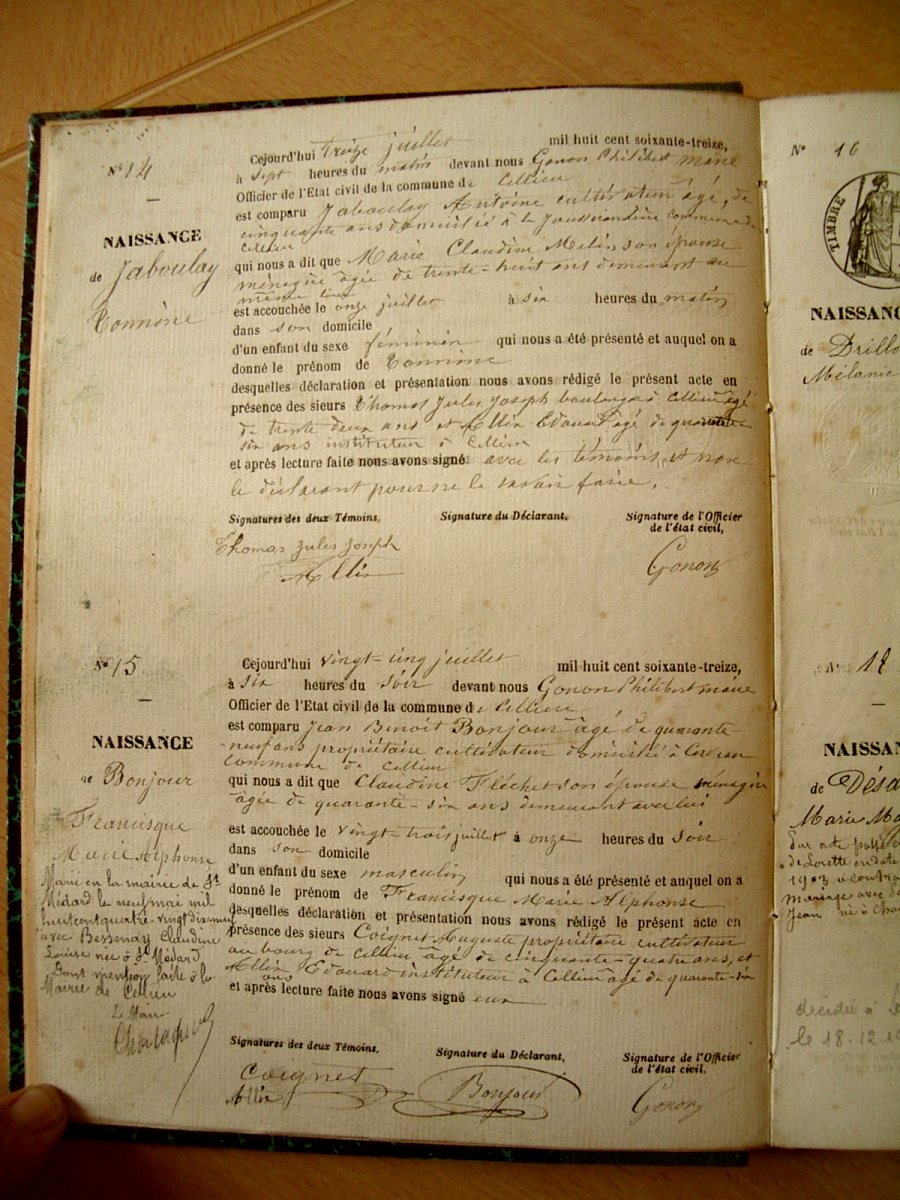 N° 14
NAISSANCE
de Jaboulay
Cejourd'hui treize juillet mil huit cent soixante-treize,
à sept heures du matin devant nous Gonon Philibert maire
Officier de l'Etat civil de la commune de Cellieu
est comparu Jaboulay Antoine cultivateur âgé, de
cinquante ans domicilié à la Jousserandine commune de
Cellieu
qui nous a dit que Marie Claudine Melin son épouse
ménagère âgée de trente-huit ans demeurant au
même lieu
est accouchée le onze juillet à six heures du matin
dans son domicile
d'un enfant du sexe féminin qui nous a été présenté et auquel on a
donné le prénom de
desquelles déclaration et présentation nous avons rédigé le présent acte en
présence des sieurs Thomas Jules Joseph boulanger à Cellieu âgé
de trente deux ans et Allix Edouard âgé de quarante
six ans instituteur à Cellieu
et après lecture faite nous avons signé avec les témoins et non
le déclarant pour ne le savoir faire.
Signatures des deux Témoins, Signature du Déclarant, Signature de l'Officier
de l'état civil,
Thomas Jules Joseph
Allix
Gonon
N° 15
NAISSANCE
de Bonjour
Francisque
Marie Alphonse
Marié en la mairie de St
Médard le neuf mai mil
huit cent quatre-vingt dix neuf
avec Bessenay Claudine
Louise née à St Médard
Dont mention faite à la
Mairie de Cellieu
Le Maire
Cejourd'hui vingt-cinq juillet mil huit cent soixante-treize,
à six heures du soir devant nous Gonon Philibert maire
Officier de l'Etat civil de la commune de Cellieu
est comparu Jean Benoit Bonjour âgé de quarante-
neuf ans propriétaire cultivateur domicilié à
commune de Cellieu
qui nous a dit que Claudine Fléchet son épouse ménagère
âgée de quarante-six ans demeurant avec lui
est accouchée le vingt-trois juillet à onze heures du soir
dans son domicile
d'un enfant du sexe masculin qui nous a été présenté et auquel on a
donné le prénom de Francisque Marie Alphonse
desquelles déclaration et présentation nous avons rédigé le présent acte en
présence des sieurs Coignet Auguste propriétaire cultivateur
au bourg de Cellieu âgé de cinquante-quatre ans, et
Allix Edouard instituteur à Cellieu âgé de quarante-six
ans
et après lecture faite nous avons signé eux
Signatures des deux Témoins, Signature du Déclarant, Signature de l'Officier
de l'état civil.
Coignet
Allix
Bonjour
Gonon
N° 16
TIMBRE
NAISSANC
de Drillo
Mélanie
N° 18
NAISSAN
de Désa
Marie Ma
de Lorette en date
mariage avec
Jean né à
décédée à
le 18.12.1